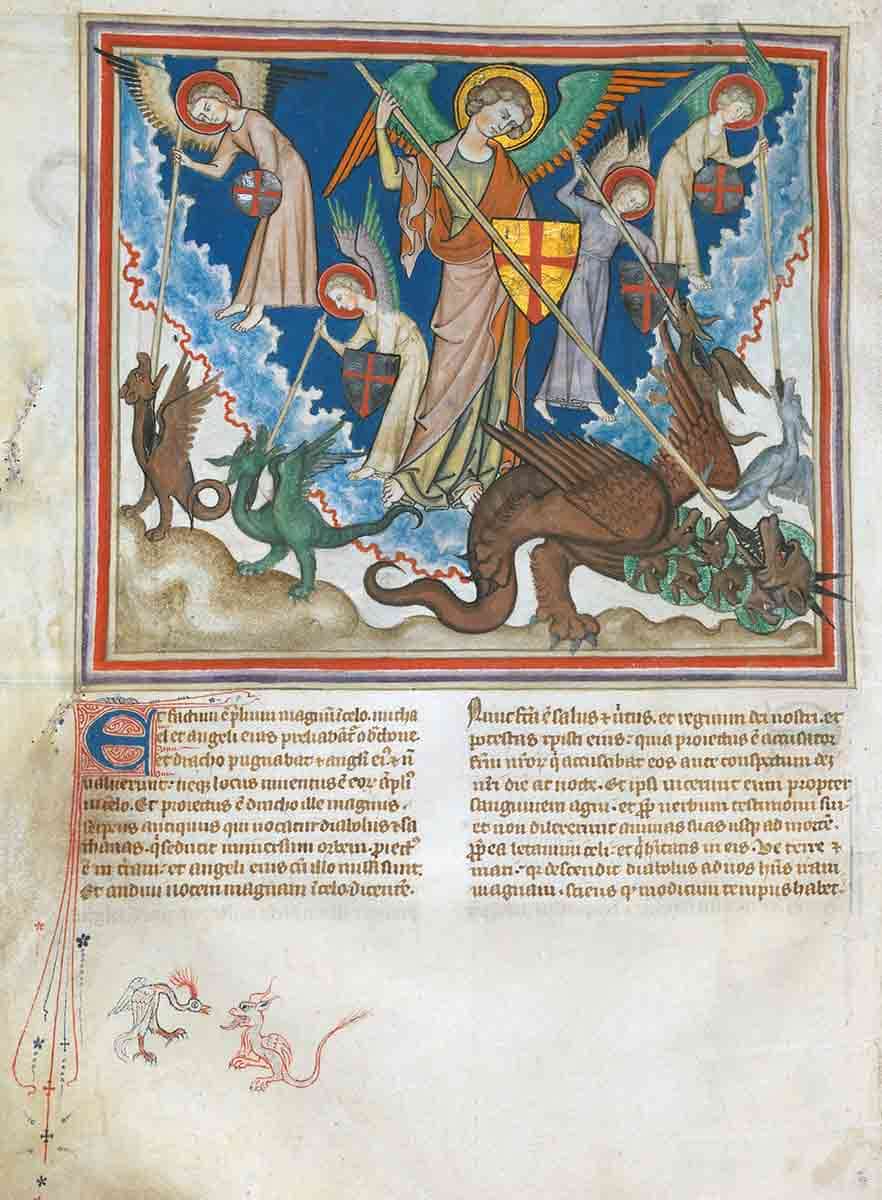 Et factum ē p̄lium magnū ī celo. micha
el et angeli eius preliabāt᷑ c̄ dͨone.
et dracho pugnabat & angli eiꝰ. & n̄
ualuerunt: neqꝫ locus inuentus ē eoꝝ āpliꝰ
in celo. Et proiectus ē dracho ille magnus.
serpens antiquus qui uocatur diabolus & sa
thanas. q̇ seducit uniuersum orbem. ꝓiectꝰ
ē in t̄ram. et angeli eius cū illo missi sunt.
Et audiui uocem magnam ī celo dicentē.
Nunc fc̄a ē salus & u̇tus. et regnum dei nostri. et
potestas xpisti eius: quia proiectus ē accusator
fr̄m nr̄oꝝ q̇ accusabat eos ante conspectum dei
nr̄i die ac nocte. Et ipsi uicerunt eum propter
sanguinem agni. et ꝓp̄ uerbum testimonii sui.
et non dilexerunt animas suas usqꝫ ad mortē.
ꝓp̄ ea letamini celi. et q̇ habitatis in eis. Ve terre &
mari. qr̄ descendit diabolus ad uos hn̄s iram
magnam. sciens qꝫ modicum tempus habet.